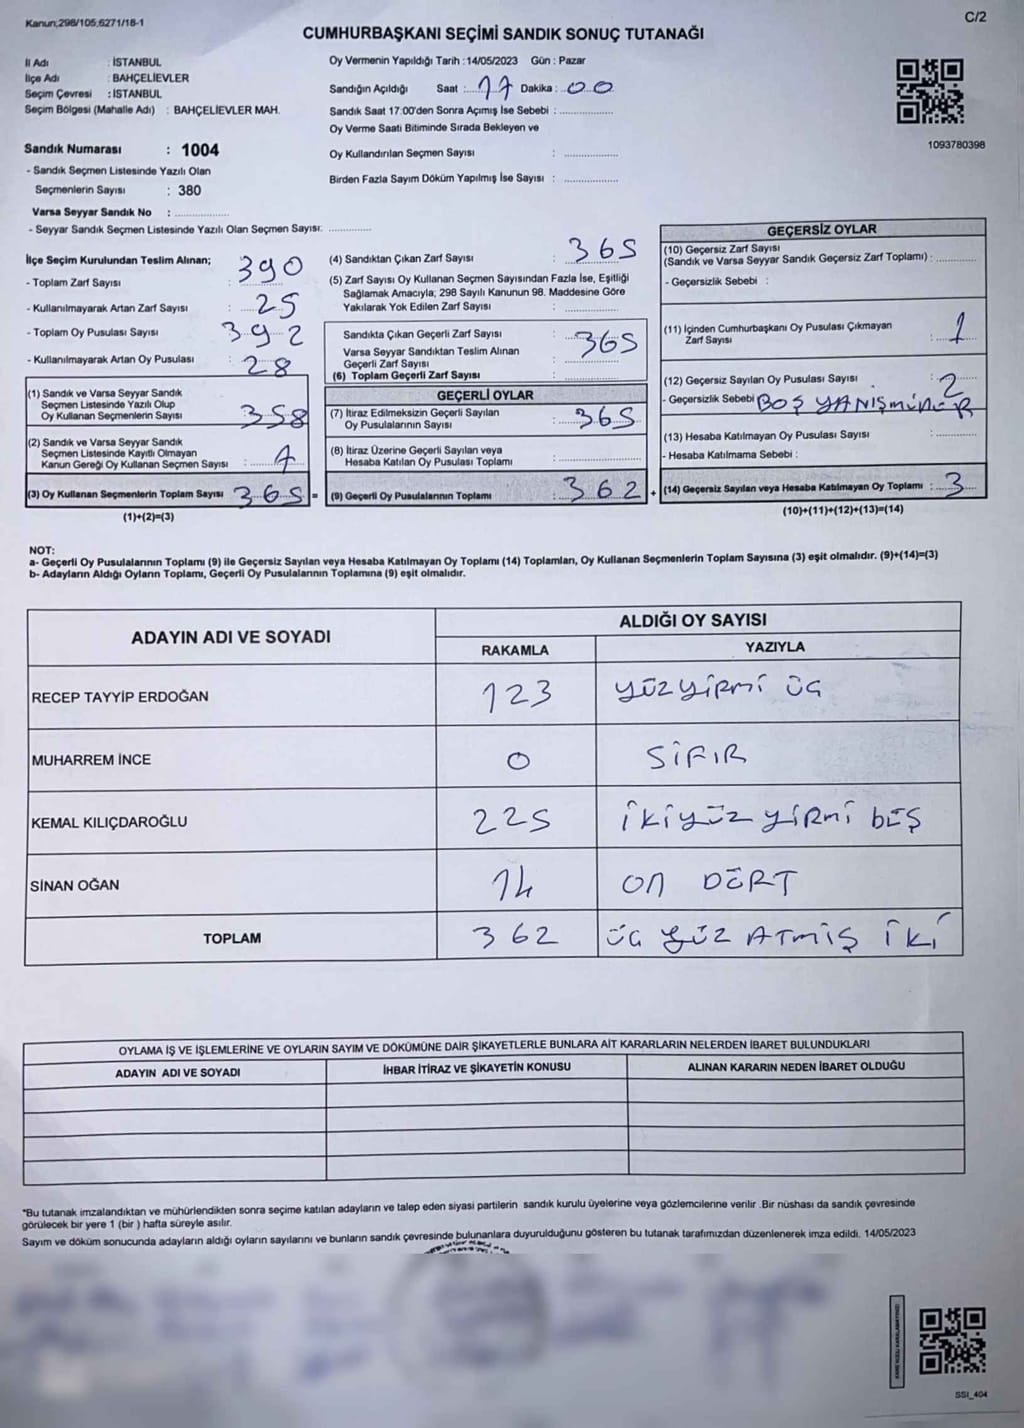 Kanun;298/105,6271/18-1
C/2
CUMHURBAŞKANI SEÇİMİ SANDIK SONUÇ TUTANAĞI
İl Adı : İSTANBUL
İlçe Adı : BAHÇELİEVLER
Seçim Çevresi : İSTANBUL
Seçim Bölgesi (Mahalle Adı) : BAHÇELİEVLER MAH.
Sandık Numarası : 1004
- Sandık Seçmen Listesinde Yazılı Olan
Seçmenlerin Sayısı : 380
Varsa Seyyar Sandık No : ..................
- Seyyar Sandık Seçmen Listesinde Yazılı Olan Seçmen Sayısı: ..............
Oy Vermenin Yapıldığı Tarih :14/05/2023 Gün : Pazar
Sandığın Açıldığı Saat : 17 Dakika : 00
Sandık Saat 17:00'den Sonra Açımış İse Sebebi : ..................
Oy Verme Saati Bitiminde Sırada Bekleyen ve
Oy Kullandırılan Seçmen Sayısı : ..................
Birden Fazla Sayım Döküm Yapılmış İse Sayısı : ..................
1093780398
İlçe Seçim Kurulundan Teslim Alınan;
- Toplam Zarf Sayısı : 390
- Kullanılmayarak Artan Zarf Sayısı : 25
- Toplam Oy Pusulası Sayısı : 392
- Kullanılmayarak Artan Oy Pusulası : 28
(1) Sandık ve Varsa Seyyar Sandık
Seçmen Listesinde Yazılı Olup
Oy Kullanan Seçmenlerin Sayısı : 358
(2) Sandık ve Varsa Seyyar Sandık
Seçmen Listesinde Kayıtlı Olmayan
Kanun Gereği Oy Kullanan Seçmen Sayısı : 7
(3) Oy Kullanan Seçmenlerin Toplam Sayısı 365 =
(1)+(2)=(3)
(4) Sandıktan Çıkan Zarf Sayısı : 365
(5) Zarf Sayısı Oy Kullanan Seçmen Sayısından Fazla İse, Eşitliği
Sağlamak Amacıyla; 298 Sayılı Kanunun 98. Maddesine Göre
Yakılarak Yok Edilen Zarf Sayısı : ..................
Sandıkta Çıkan Geçerli Zarf Sayısı : 365
Varsa Seyyar Sandıktan Teslim Alınan
Geçerli Zarf Sayısı : ..................
(6) Toplam Geçerli Zarf Sayısı : ..................
GEÇERLİ OYLAR
(7) İtiraz Edilmeksizin Geçerli Sayılan
Oy Pusulalarının Sayısı : 365
(8) İtiraz Üzerine Geçerli Sayılan veya
Hesaba Katılan Oy Pusulası Toplamı : ..................
(9) Geçerli Oy Pusulalarının Toplamı : 362 +
GEÇERSİZ OYLAR
(10) Geçersiz Zarf Sayısı
(Sandık ve Varsa Seyyar Sandık Geçersiz Zarf Toplamı) : ............
- Geçersizlik Sebebi :
(11) İçinden Cumhurbaşkanı Oy Pusulası Çıkmayan
Zarf Sayısı : 1
(12) Geçersiz Sayılan Oy Pusulası Sayısı : 2
- Geçersizlik Sebebi BOŞ
(13) Hesaba Katılmayan Oy Pusulası Sayısı : ............
- Hesaba Katılmama Sebebi :
(14) Geçersiz Sayılan veya Hesaba Katılmayan Oy Toplamı : 3
(10)+(11)+(12)+(13)=(14)
NOT:
a- Geçerli Oy Pusulalarının Toplamı (9) ile Geçersiz Sayılan veya Hesaba Katılmayan Oy Toplamı (14) Toplamları, Oy Kullanan Seçmenlerin Toplam Sayısına (3) eşit olmalıdır. (9)+(14)=(3)
b- Adayların Aldığı Oyların Toplamı, Geçerli Oy Pusulalarının Toplamına (9) eşit olmalıdır.
ADAYIN ADI VE SOYADI
ALDIĞI OY SAYISI
RAKAMLA YAZIYLA
RECEP TAYYİP ERDOĞAN 123 yüzyirmi üç
MUHARREM İNCE 0 SIFIR
KEMAL KILIÇDAROĞLU 225 ikiyüz yirmi bEŞ
SİNAN OĞAN 14 on DÖRT
TOPLAM 362 üç yüz ATMIŞ iki
OYLAMA İŞ VE İŞLEMLERİNE VE OYLARIN SAYIM VE DÖKÜMÜNE DAİR ŞİKAYETLERLE BUNLARA AİT KARARLARIN NELERDEN İBARET BULUNDUKLARI
ADAYIN ADI VE SOYADI İHBAR İTİRAZ VE ŞİKAYETİN KONUSU ALINAN KARARIN NEDEN İBARET OLDUĞU
*Bu tutanak imzalandıktan ve mühürlendikten sonra seçime katılan adayların ve talep eden siyasi partilerin sandık kurulu üyelerine veya gözlemcilerine verilir .Bir nüshası da sandık çevresinde
görülecek bir yere 1 (bir ) hafta süreyle asılır.
Sayım ve döküm sonucunda adayların aldığı oyların sayılarını ve bunların sandık çevresinde bulunanlara duyurulduğunu gösteren bu tutanak tarafımızdan düzenlenerek imza edildi. 14/05/2023
SSI_404